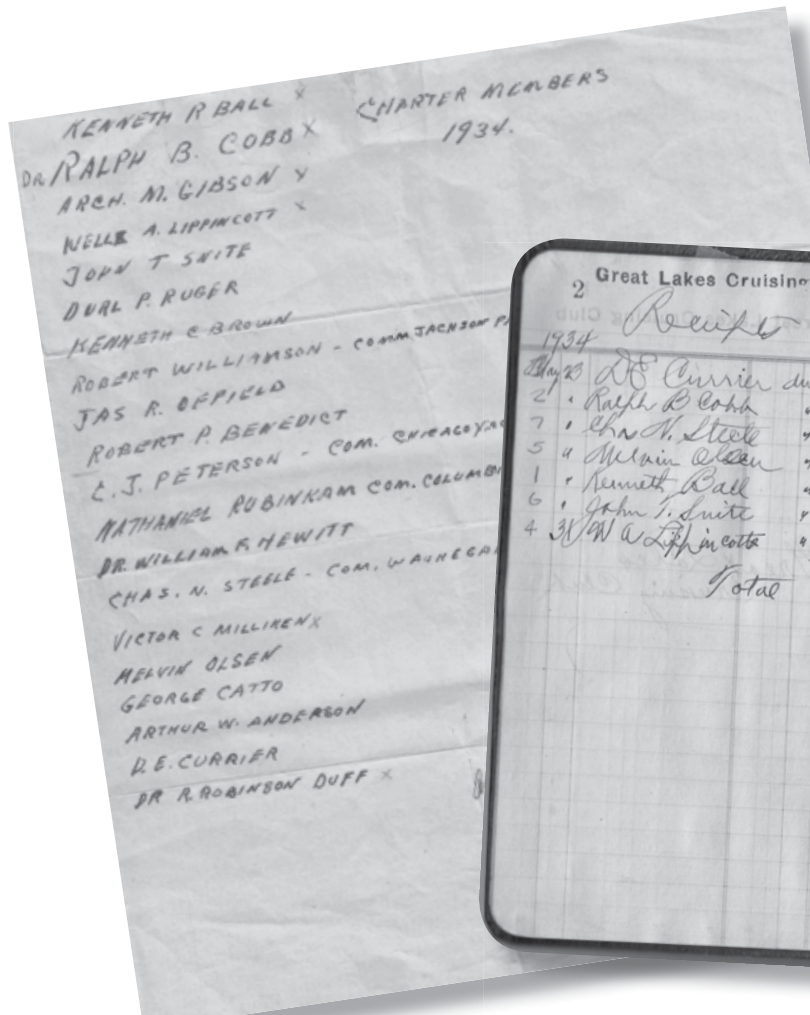 KENNETH R BALL X
CHARTER MEMBERS
1934.
DR RALPH B. COBB X
ARCH. M. GIBSON X
WELLS A. LIPPINCOTT X
JOHN T SNITE
DURL P. RUGER
KENNETH C BROWN
ROBERT WILLIAMSON - COMM JACKSON P
JAS R. OFFIELD
ROBERT P. BENEDICT
C. J. PETERSON - COM. CHICAGO
NATHANIEL RUBINKAM COM. COLUMBI
DR. WILLIAM F. HEWITT
CHAS. N. STEELE - COM. WAUKEGA
VICTOR C MILLIKEN X
MELVIN OLSEN
GEORGE CATTO
ARTHUR W. ANDERSON
D. E. CURRIER
DR R. ROBINSON DUFF X
2 Great Lakes Cruising
Receipts
1934
May 23 DE Currier du
2 " Ralph B Cobb "
7 " Chas N. Steele "
5 " Melvin Olsen "
1 " Kenneth Ball "
6 " John T. Snite "
4 31 W A Lippincott "
Total